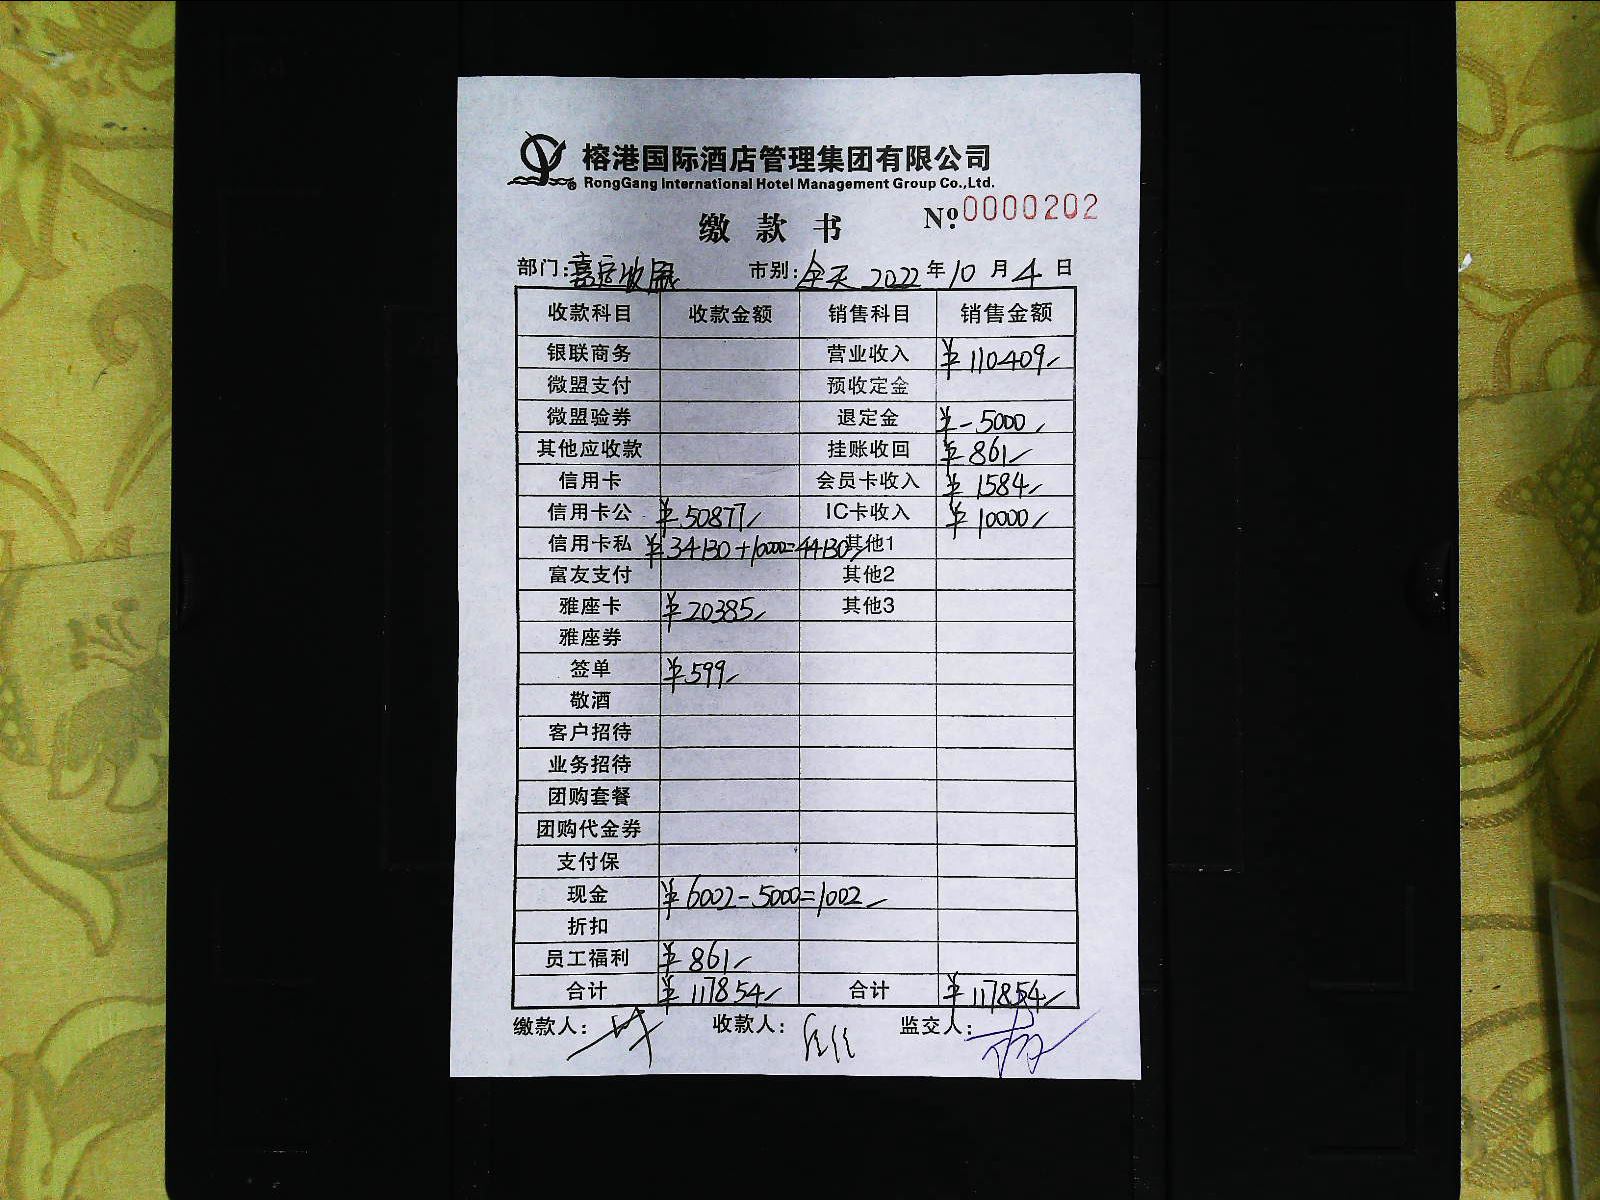 榕港国际酒店管理集团有限公司
RongGang International Hotel Management Group Co.,Ltd.
缴款书 №0000202
部门: 市别:全天 2022年10月4日
收款科目 收款金额 销售科目 销售金额
银联商务 营业收入 ¥110409
微盟支付 预收定金
微盟验券 退定金 ¥-5000
其他应收款 挂账收回 ¥861
信用卡 会员卡收入 ¥1584
信用卡公 ¥50877 IC卡收入 ¥10000
信用卡私 ¥34130+10000=44130 其他1
富友支付 其他2
雅座卡 ¥20385 其他3
雅座券
签单 ¥599
敬酒
客户招待
业务招待
团购套餐
团购代金券
支付保
现金 ¥6002-5000=1002
折扣
员工福利 ¥861
合计 ¥117854 合计 ¥117854
缴款人: 收款人: 监交人: